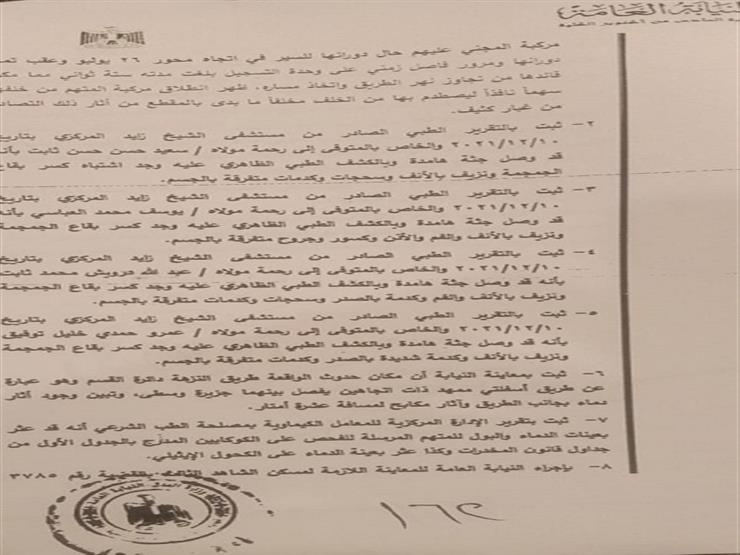 النيابة العامة
مركبة المجني عليهم حال دورانها للسير في اتجاه محور ٢٦ يوليو وعقب
دورانها ومرور فاصل زمني على وحدة التسجيل بلغت مدته ستة ثواني مما
قائدها من تجاوز نهر الطريق واتخاذ مساره، ظهر انطلاق مركبة المتهم من
سهماً نافذاً ليصطدم بها من الخلف مخلفاً ما بدى بالمقطع من آثار ذلك
من غبار كثيف.
٢- ثبت بالتقرير الطبي الصادر من مستشفى الشيخ زايد المركزي بتاريخ
٢٠٢١/١٢/١٠ والخاص بالمتوفى إلى رحمة مولاه / سعيد حسن حسن ثابت بأنه
قد وصل جثة هامدة وبالكشف الطبي الظاهري عليه وجد اشتباه كسر بقاع
الجمجمة ونزيف بالأنف وسحجات وكدمات متفرقة بالجسم.
٣- ثبت بالتقرير الطبي الصادر من مستشفى الشيخ زايد المركزي بتاريخ
٢٠٢١/١٢/١٠ والخاص بالمتوفى إلى رحمة مولاه / يوسف محمد العباسي بأنه
قد وصل جثة هامدة وبالكشف الطبي الظاهري عليه وجد كسر بقاع الجمجمة
ونزيف بالأنف والفم والأذن وكسور وجروح متفرقة بالجسم.
٤- ثبت بالتقرير الطبي الصادر من مستشفى الشيخ زايد المركزي بتاريخ
٢٠٢١/١٢/١٠ والخاص بالمتوفى إلى رحمة مولاه / عبد الله درويش محمد ثابت
بأنه قد وصل جثة هامدة وبالكشف الطبي الظاهري عليه وجد كسر بقاع الجمجمة
ونزيف بالأنف والفم وكدمة بالصدر وسحجات وكدمات متفرقة بالجسم.
٥- ثبت بالتقرير الطبي الصادر من مستشفى الشيخ زايد المركزي بتاريخ
٢٠٢١/١٢/١٠ والخاص بالمتوفى إلى رحمة مولاه / عمرو حمدي خليل توفيق
بأنه قد وصل جثة هامدة وبالكشف الطبي الظاهري عليه وجد كسر بقاع الجمجمة
ونزيف بالأنف وكدمة شديدة بالصدر وكدمات متفرقة بالجسم.
٦- ثبت بمعاينة النيابة أن مكان حدوث الواقعة طريق النزهة دائرة القسم وهو عبارة
عن طريق أسفلتي ممهد ذات اتجاهين يفصل بينهما جزيرة وسطى، وتبين وجود آثار
دماء بجانب الطريق وآثار مكابح لمسافة عشرة أمتار.
٧- ثبت بتقرير الإدارة المركزية للمعامل الكيماوية بمصلحة الطب الشرعي أنه قد عثر
بعينات الدماء والبول للمتهم المرسلة للفحص على الكوكايين المدرج بالجدول الأول من
جداول قانون المخدرات وكذا عثر بعينة الدماء على الكحول الإيثيلي.
٨- بإجراء النيابة العامة للمعاينة اللازمة لمسكن الشاهد الثالث بالقضية رقم ٣٧٨٥